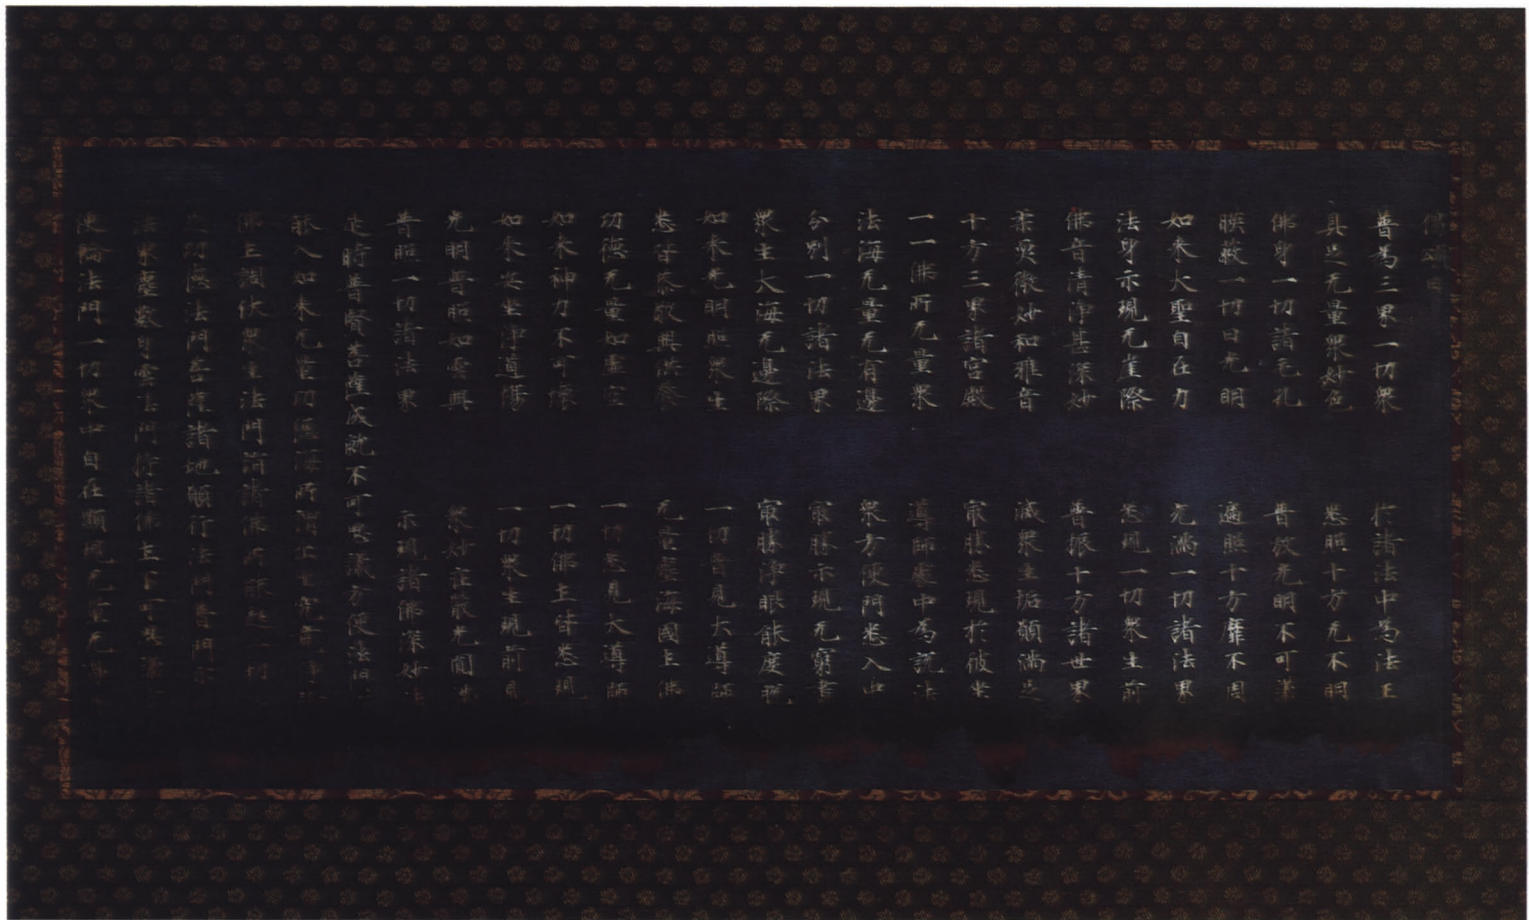 偈頌曰
普為三界一切眾　於諸法中為法王
具足无量眾妙色　悉照十方无不明
佛身一切諸毛孔　普放光明不可議
暎蔽一切日光明　遍照十方靡不周
如来大聖自在力　充滿一切諸法界
法身示現无崖際　悉現一切眾生前
佛音清淨甚深妙　普振十方諸世界
柔耎微妙和雅音　滅眾生垢願滿足
十方三界諸宮殿　冣勝悉現於彼坐
一一佛所无量眾　導師處中為說法
法海无量无有邊　眾方便門悉入中
分別一切諸法界　冣勝示現无窮盡
眾生大海无邊際　冣勝淨眼能度脫
如来光明照眾生　一切普見大導師
悉皆恭敬興供養　无量塵海國土佛
功德无量如虛空　一切悉見大導師
如来神力不可壞　一切佛土皆悉現
如来安坐淨道場　一切眾生現前見
光明普照如雲興　眾妙莊嚴光圓
普照一切諸法界　示現諸佛深妙
是時普賢菩薩成就不可思議方便法門
入如来无量功德海所謂出生究竟
佛土調伏眾生法門詣諸佛所能起一切
功德法門菩薩諸地願行法門普門示
法界塵數身雲法門持諸佛土不可思議
轉法門一切眾中自在顯現无量无